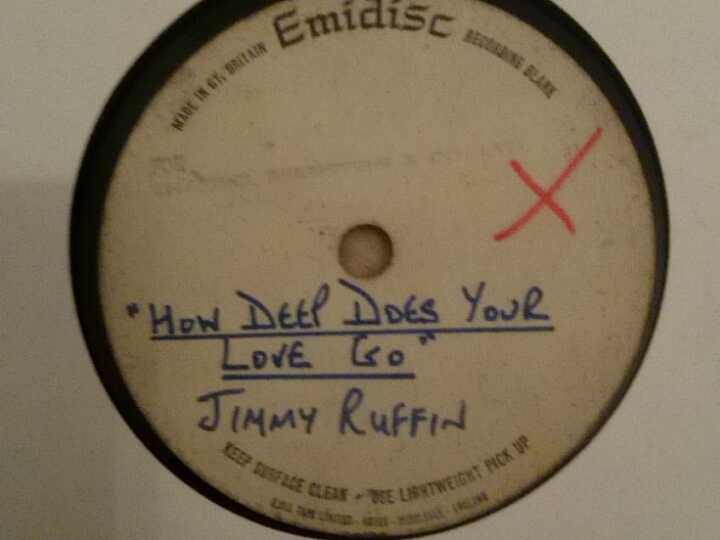 Emidisc
MADE IN GT. BRITAIN
RECORDING BLANK
"HOW DEEP DOES YOUR
LOVE GO"
JIMMY RUFFIN
KEEP SURFACE CLEAN - USE LIGHTWEIGHT PICK UP
ENGLAND